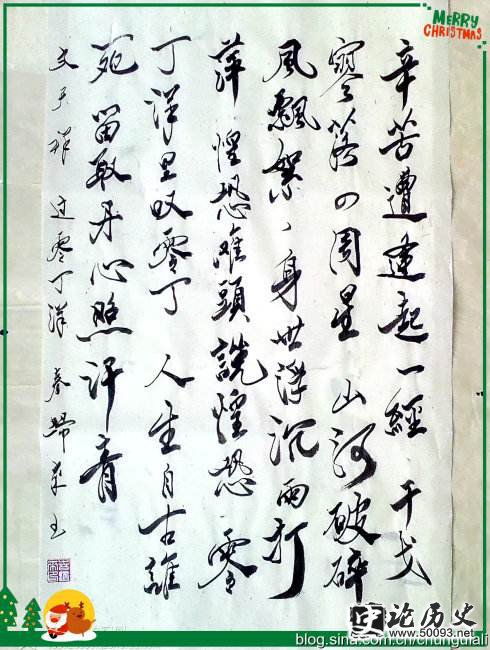 MERRY
CHRISTMAS
辛苦遭逢起一經 干戈
寥落四周星 山河破碎
風飄絮 身世浮沉雨打
萍 惶恐灘頭說惶恐 零
丁洋里叹零丁 人生自古誰
留取丹心照汗青
文天祥 过零丁洋 春
论历史
www.50093.net
blog.sina.com.cn/chunguiali